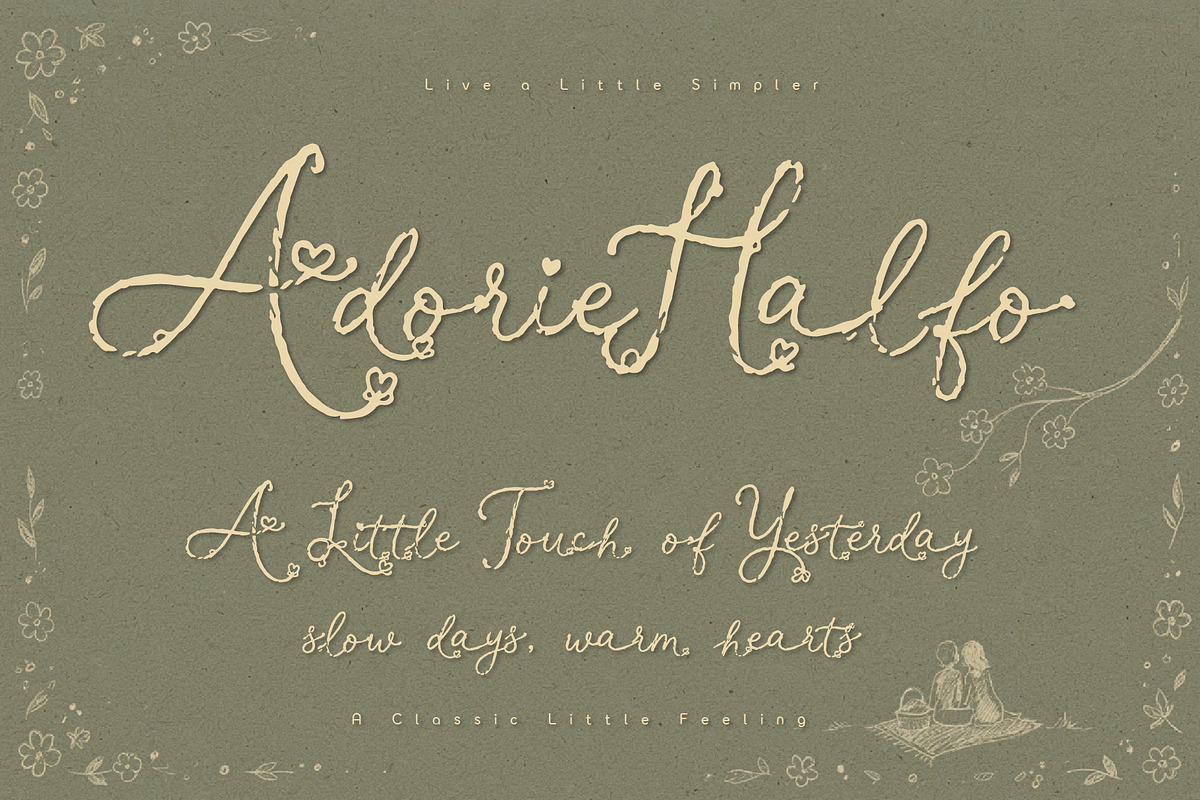 Live a Little Simpler
Adorie Halfo
A Little Touch of Yesterday
slow days, warm hearts
A Classic Little Feeling